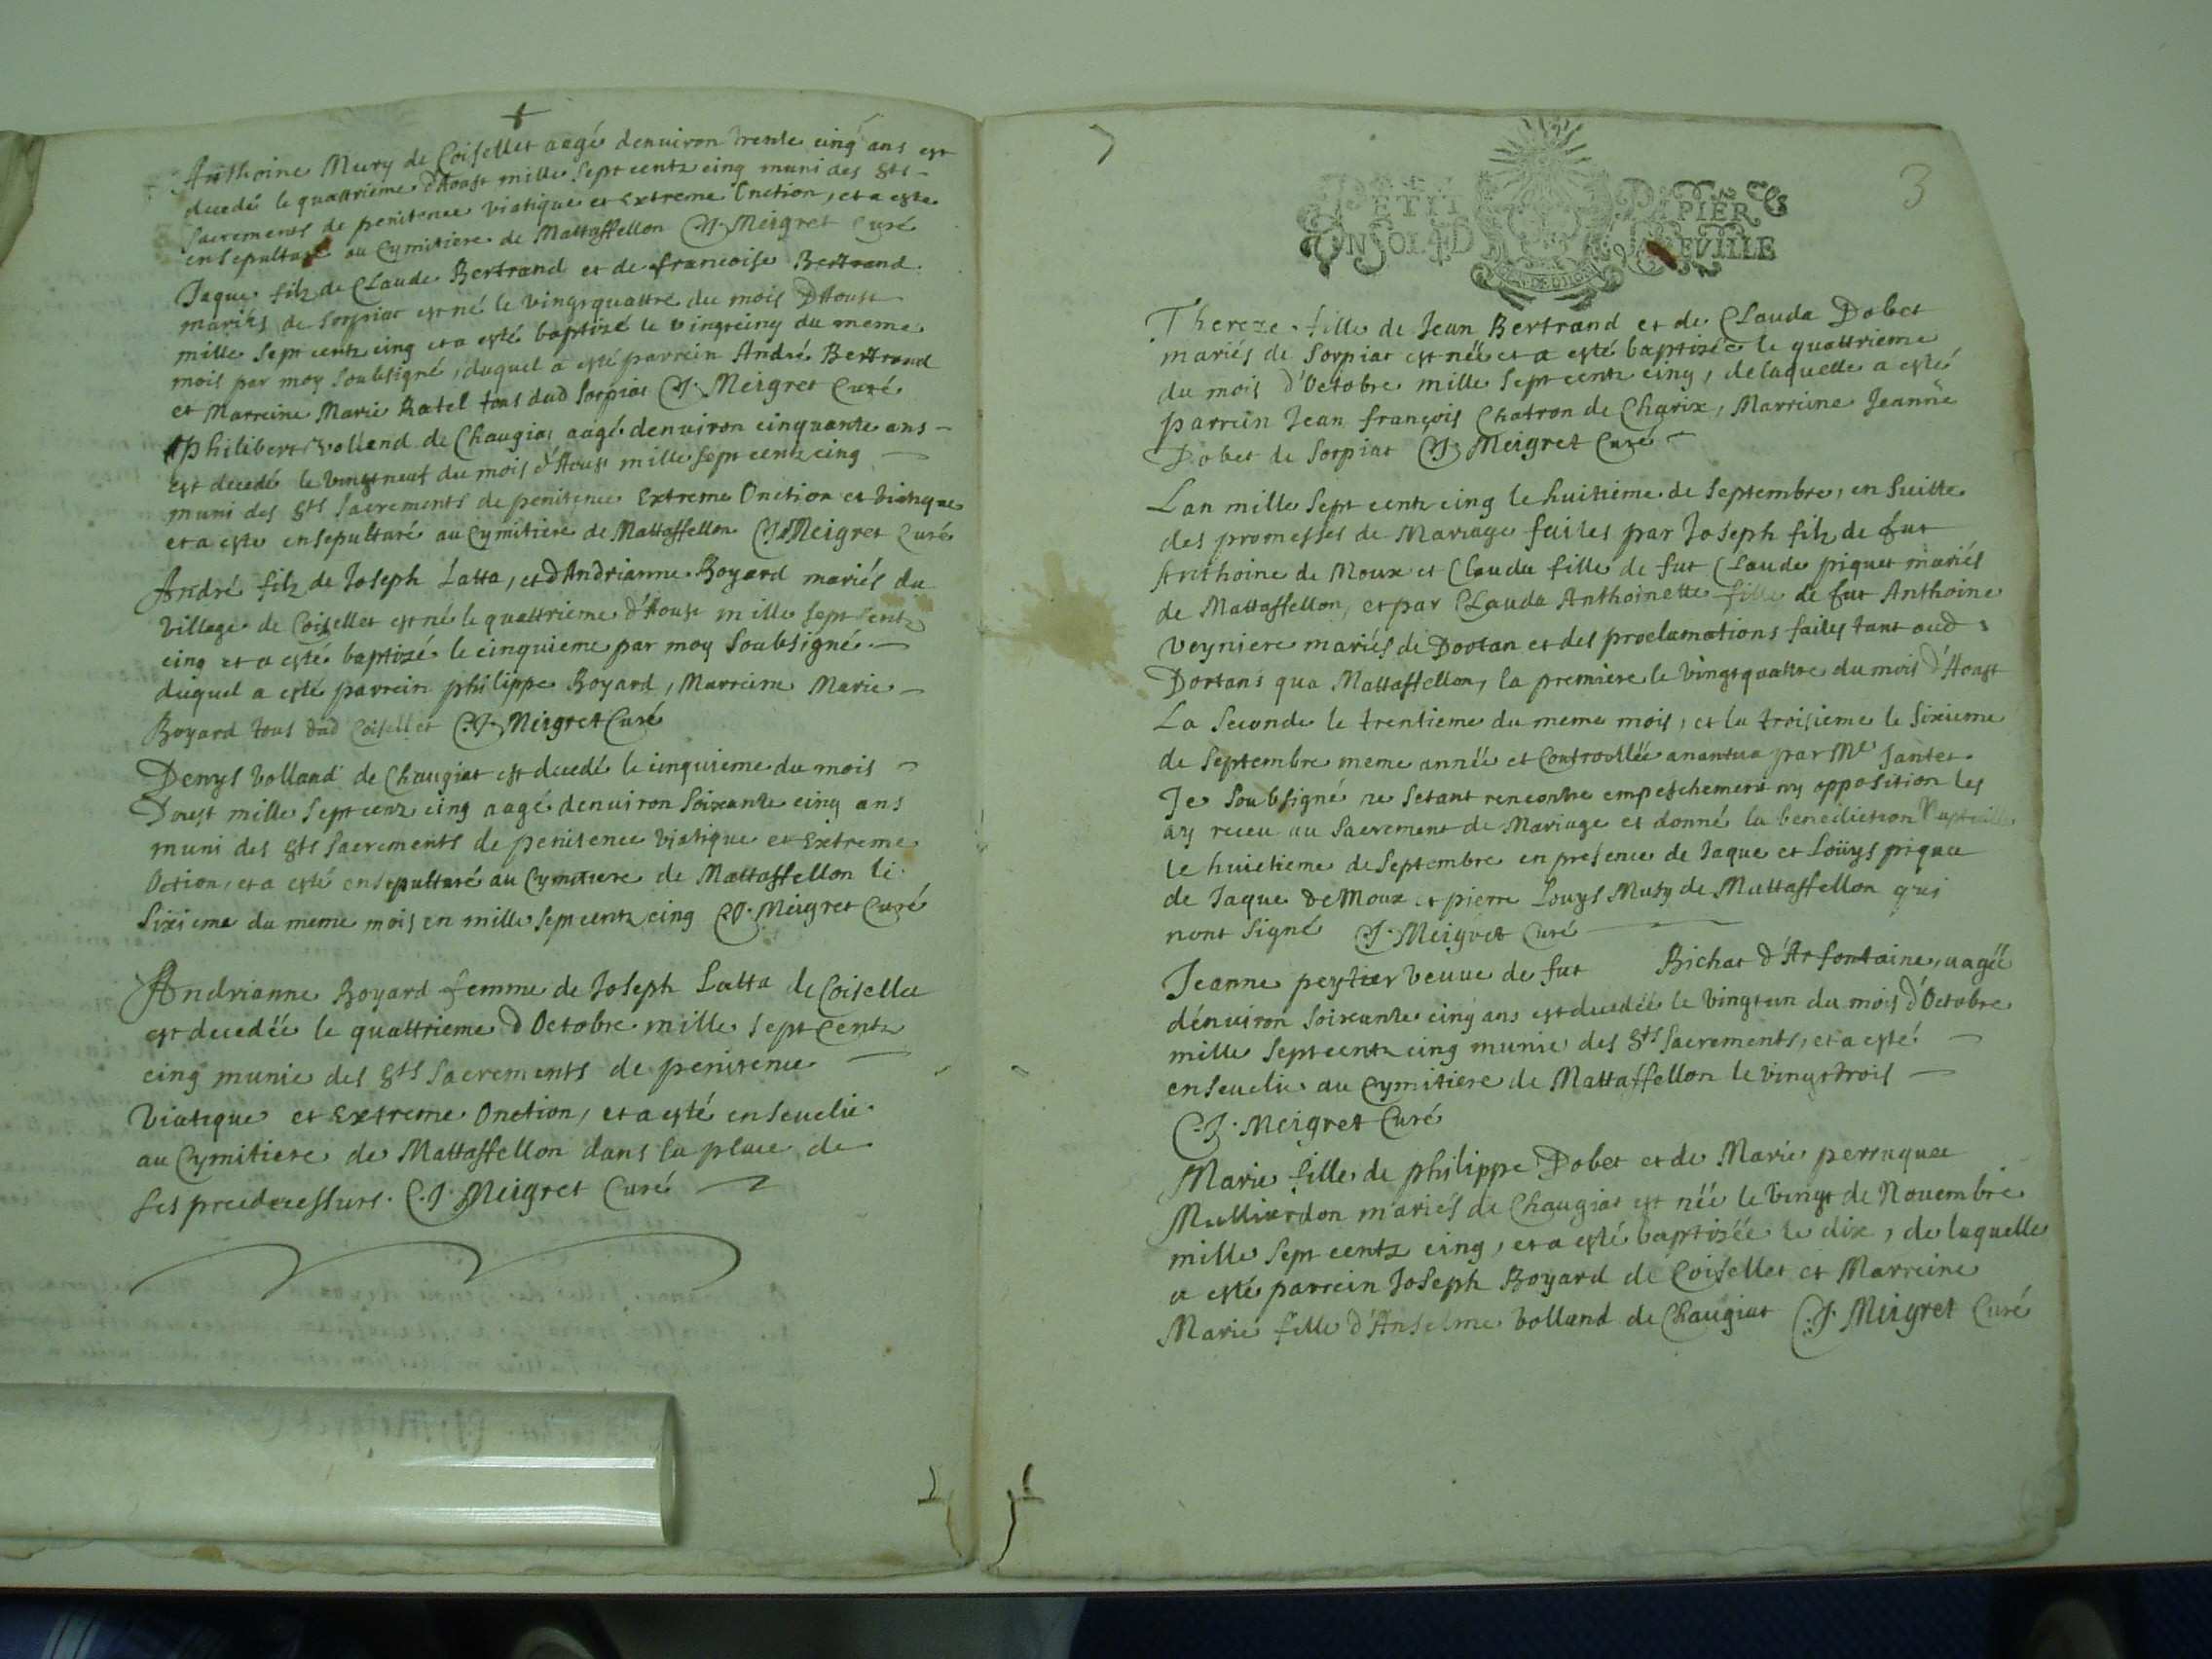 Anthoine Mury de Coisellet aagé denuiron trente cinq ans est
decedé le quattrieme d'Aoust mille sept centz cinq muni des Sts
sacrements de penitence viatique et Extreme Onction, et a este
ensepulturé au Cymitiere de Mattaffellon C.J. Meigret Curé
Jaque filz de Claude Bertrand et de francoise Bertrand
mariés de Sorpiat est né le vingtquattre du mois D'Aoust
mille sept centz cinq et a esté baptizé le vingtcinq du meme
mois par moy soubsigné, duquel a esté parrein André Bertrand
et Marreine Marie Ratel tous dud Sorpiat C.J. Meigret Curé
Philibert volland de Chaugiat aagé denuiron cinquante ans
est decedé le vingtneuf du mois d'Aoust mille sept centz cinq
muni des Sts sacrements de penitence Extreme Onction et viatique
et a este ensepulturé au Cymitiere de Mattaffellon C.J. Meigret Curé
André filz de Joseph Latta, et d'Andrianne Boyard mariés du
village de Coisellet est né le quattrieme d'Aoust mille sept sentz
cinq et a esté baptizé le cinquieme par moy soubsigné
duquel a esté parrein philippe Boyard, Marreine Marie
Boyard tous dud Coisellet C.J. Meigret Curé
Denys volland de Chaugiat est decedé le cinquieme du mois
Doust mille sept cenz cinq aagé denuiron soixante cinq ans
muni des Sts sacrements de penitence viatique et Extreme
Oction, et a esté ensepulturé au Cymitiere de Mattaffellon le
sixieme du meme mois en mille sept centz cinq C.J. Meigret Curé
Andrianne Boyard femme de Joseph Latta de Coisellet
est decedée le quattrieme d'Octobre mille sept Centz
cinq munie des Sts sacrements de penitence
viatique et Extreme Onction, et a esté enseuelie
au Cymitiere de Mattaffellon dans la place de
ses predecessurs. C.J. Meigret Curé
3
PETIT PAPIER
UN SOL 4 D LE FEUILLE
Thereze fille de Jean Bertrand et de Clauda Dobet
mariés de Sorpiat est née et a esté baptizée le quattrieme
du mois d'Octobre mille sept centz cinq, de laquelle a esté
parrein Jean françois Chatron de Charix, Marreine Jeanne
Dobet de Sorpiat C.J. Meigret Curé
Lan mille sept centz cinq le huitieme de septembre, en suitte
des promesses de Mariage faites par Joseph filz de fut
Anthoine de Moux et Clauda fille de fut Claude piquet mariés
de Mattaffellon, et par Clauda Anthoinette fille de fut Anthoine
veyniere mariés de Dortan et des proclamations faites tant aud
Dortans qua Mattaffellon, la premiere le vingtquattre du mois d'Aoust
La seconde le trentieme du meme mois, et la troisieme le sixieme
de septembre meme année et Controollée anantua par Me Jantet
Je soubsigné ne setant rencontre empeschement ny opposition les
ay receu au sacrement de Mariage et donné la benediction Nuptialle
le huietieme de septembre en presence de Jaque et Loüys piquet
de Jaque DeMoux et pierre Louys Musy de Mattaffellon qui
nont signé C.J. Meigret Curé
Jeanne peytier veuue de fut Bichat d'Arfontaine, aagée
dénuiron soixante cinq ans est decedée le vingtun du mois d'Octobre
mille sept centz cinq munie des Sts sacrements, et a esté
enseuelie au Cymitiere de Mattaffellon le vingttrois
C.J. Meigret Curé
Marie fille de philippe Dobet et de Marie perruquet
mariés de Chaugiat est née le vingt de Nouembre
mille sept centz cinq, et a esté baptizée le dix, de laquelle
a esté parrein Joseph Boyard de Coisellet et Marreine
Marie fille d'Anselme volland de Chaugiat C.J. Meigret Curé